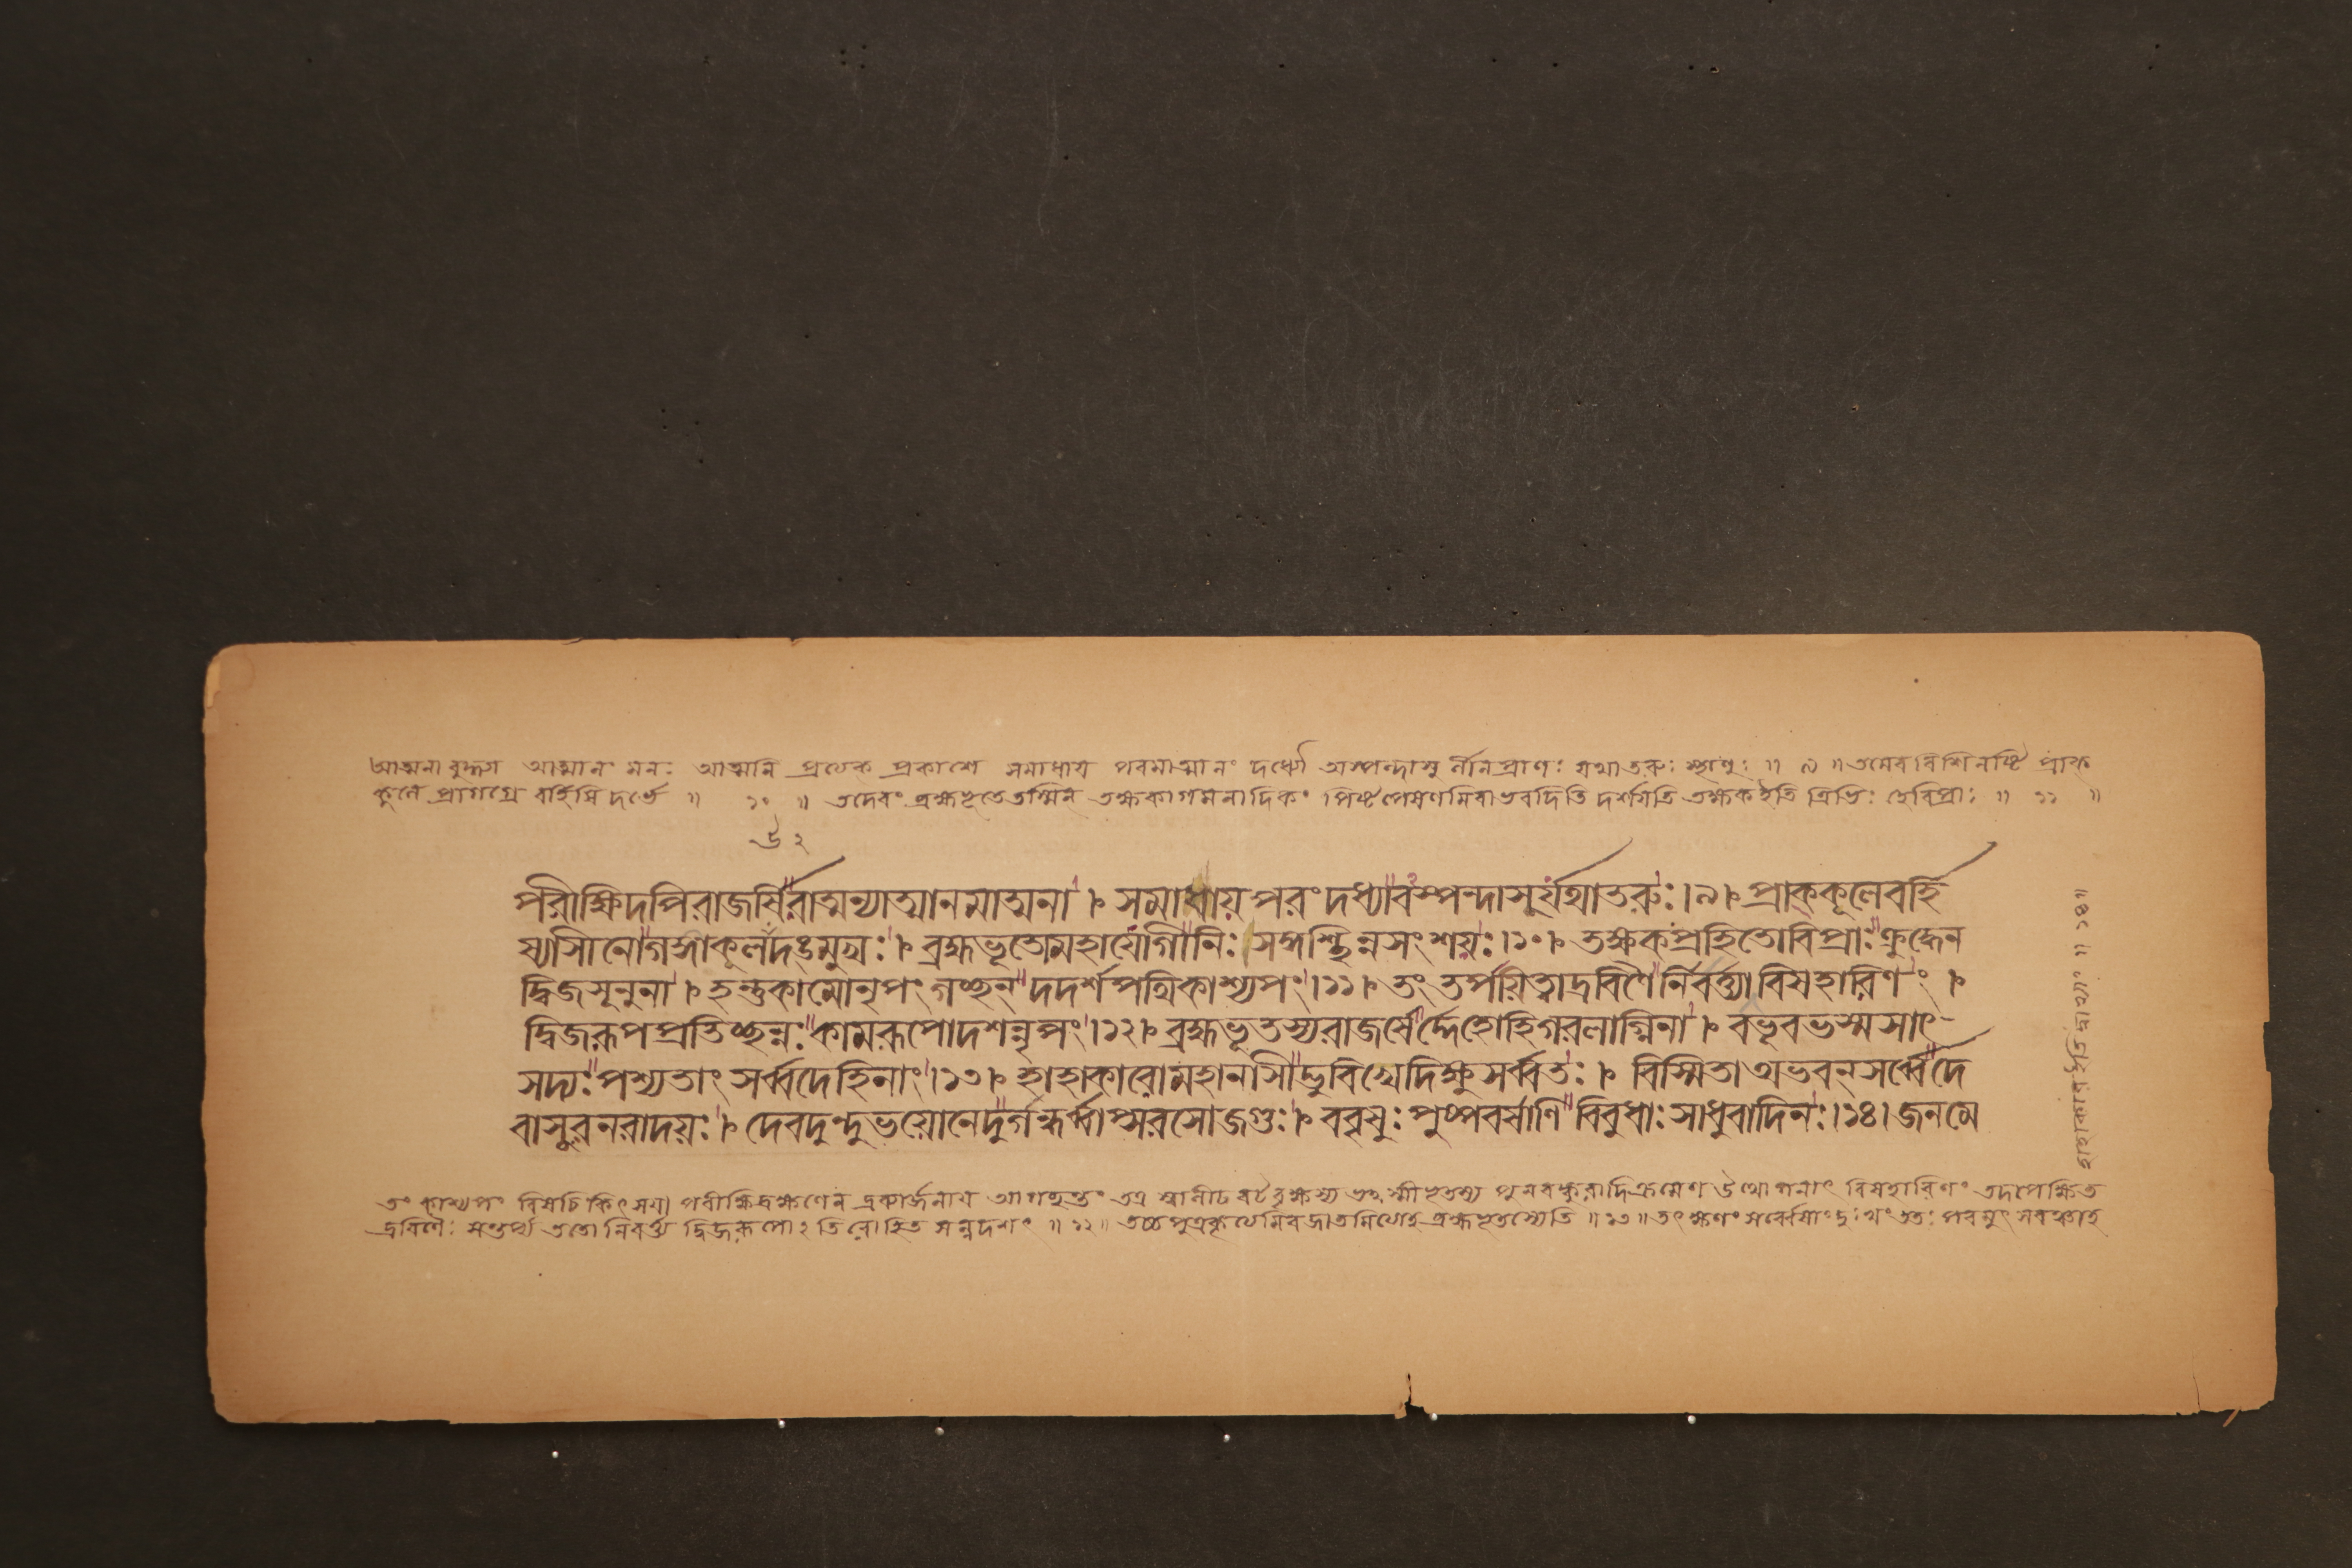 আত্মনা বুদ্ধ্যা আত্মানং মনঃ আত্মনি প্রত্যক প্রকাশে সমাধায় পরমাত্মানং দধ্যৌ অস্পন্দাসু র্লীনপ্রাণঃ যথাতরুঃ স্থাণুঃ ॥ ৯ ॥ তমেব বিশিনষ্টি প্রাক্
কূলে প্রাগগ্রে বর্হিষি দর্ভে ॥ ১০ ॥ তদেবং ব্রহ্মভূতেতস্মিন্ তক্ষকাগমনাদিকং পিষ্টপেষণমিবাভবদিতি দর্শয়তি তক্ষকইতি ত্রিভিঃ হেবিপ্রাঃ ॥ ১১ ॥
পরীক্ষিদপিরাজর্ষিরাত্মন্যাত্মানমাত্মনা । সমাধায়পরংদধ্যাবস্পন্দাসুর্যথাতরুঃ।৯। প্রাক্কূলেবর্হি
ষ্যাসীনোগঙ্গাকূলউদঙ্মুখঃ। ব্রহ্মভূতোমহাযোগীনিঃসঙ্গশ্ছিন্নসংশয়ঃ।১০। তক্ষকঃপ্রহিতোবিপ্রাঃক্রুদ্ধেন
দ্বিজসূনুনা । হন্তুকামোনৃপংগচ্ছন্দদর্শপথিকাশ্যপং।১১। তং তর্পয়িত্বাদ্রবিণৈর্নিবর্ত্ত্যবিষহারিণং ।
দ্বিজরূপপ্রতিচ্ছন্নঃকামরূপোদশন্নৃপং।১২। ব্রহ্মভূতস্যরাজর্ষের্দ্দেহোহিগরলাগ্নিনা । বভূবভস্মসাৎ
সদ্যঃপশ্যতাং সর্ব্বদেহিনাং।১৩। হাহাকারোমহানাসীদ্ভুবিখেদিক্ষুসর্ব্বতঃ । বিস্মিতাঅভবন্সর্ব্বেদে
বাসুরনরাদয়ঃ। দেবদুন্দুভয়োনেদুর্গন্ধর্ব্বাপ্সরসোজগুঃ। ববৃষুঃপুষ্পবর্ষাণি বিবুধাঃসাধুবাদিনঃ।১৪।জনমে
তং কাশ্যপং বিষচিকিৎসয়া পরীক্ষিদ্রক্ষণেন দ্রব্যার্জনায় আগচ্ছন্তং তত্র বটবৃক্ষস্য পুনরঙ্কুরাদিক্রমেণ বিষহারিণং তদপেক্ষিত
দ্রবিণৈঃ সন্তর্প্য ততো নিবর্ত্ত্য দ্বিজরূপো ॥ ১২॥ ব্রহ্মভূতস্যেতি ॥ ১৩॥ তৎক্ষণং সর্ব্বেষাংদুঃখং ততঃ
হাহাকারইতি দ্বাভ্যাং ॥ ১৪॥